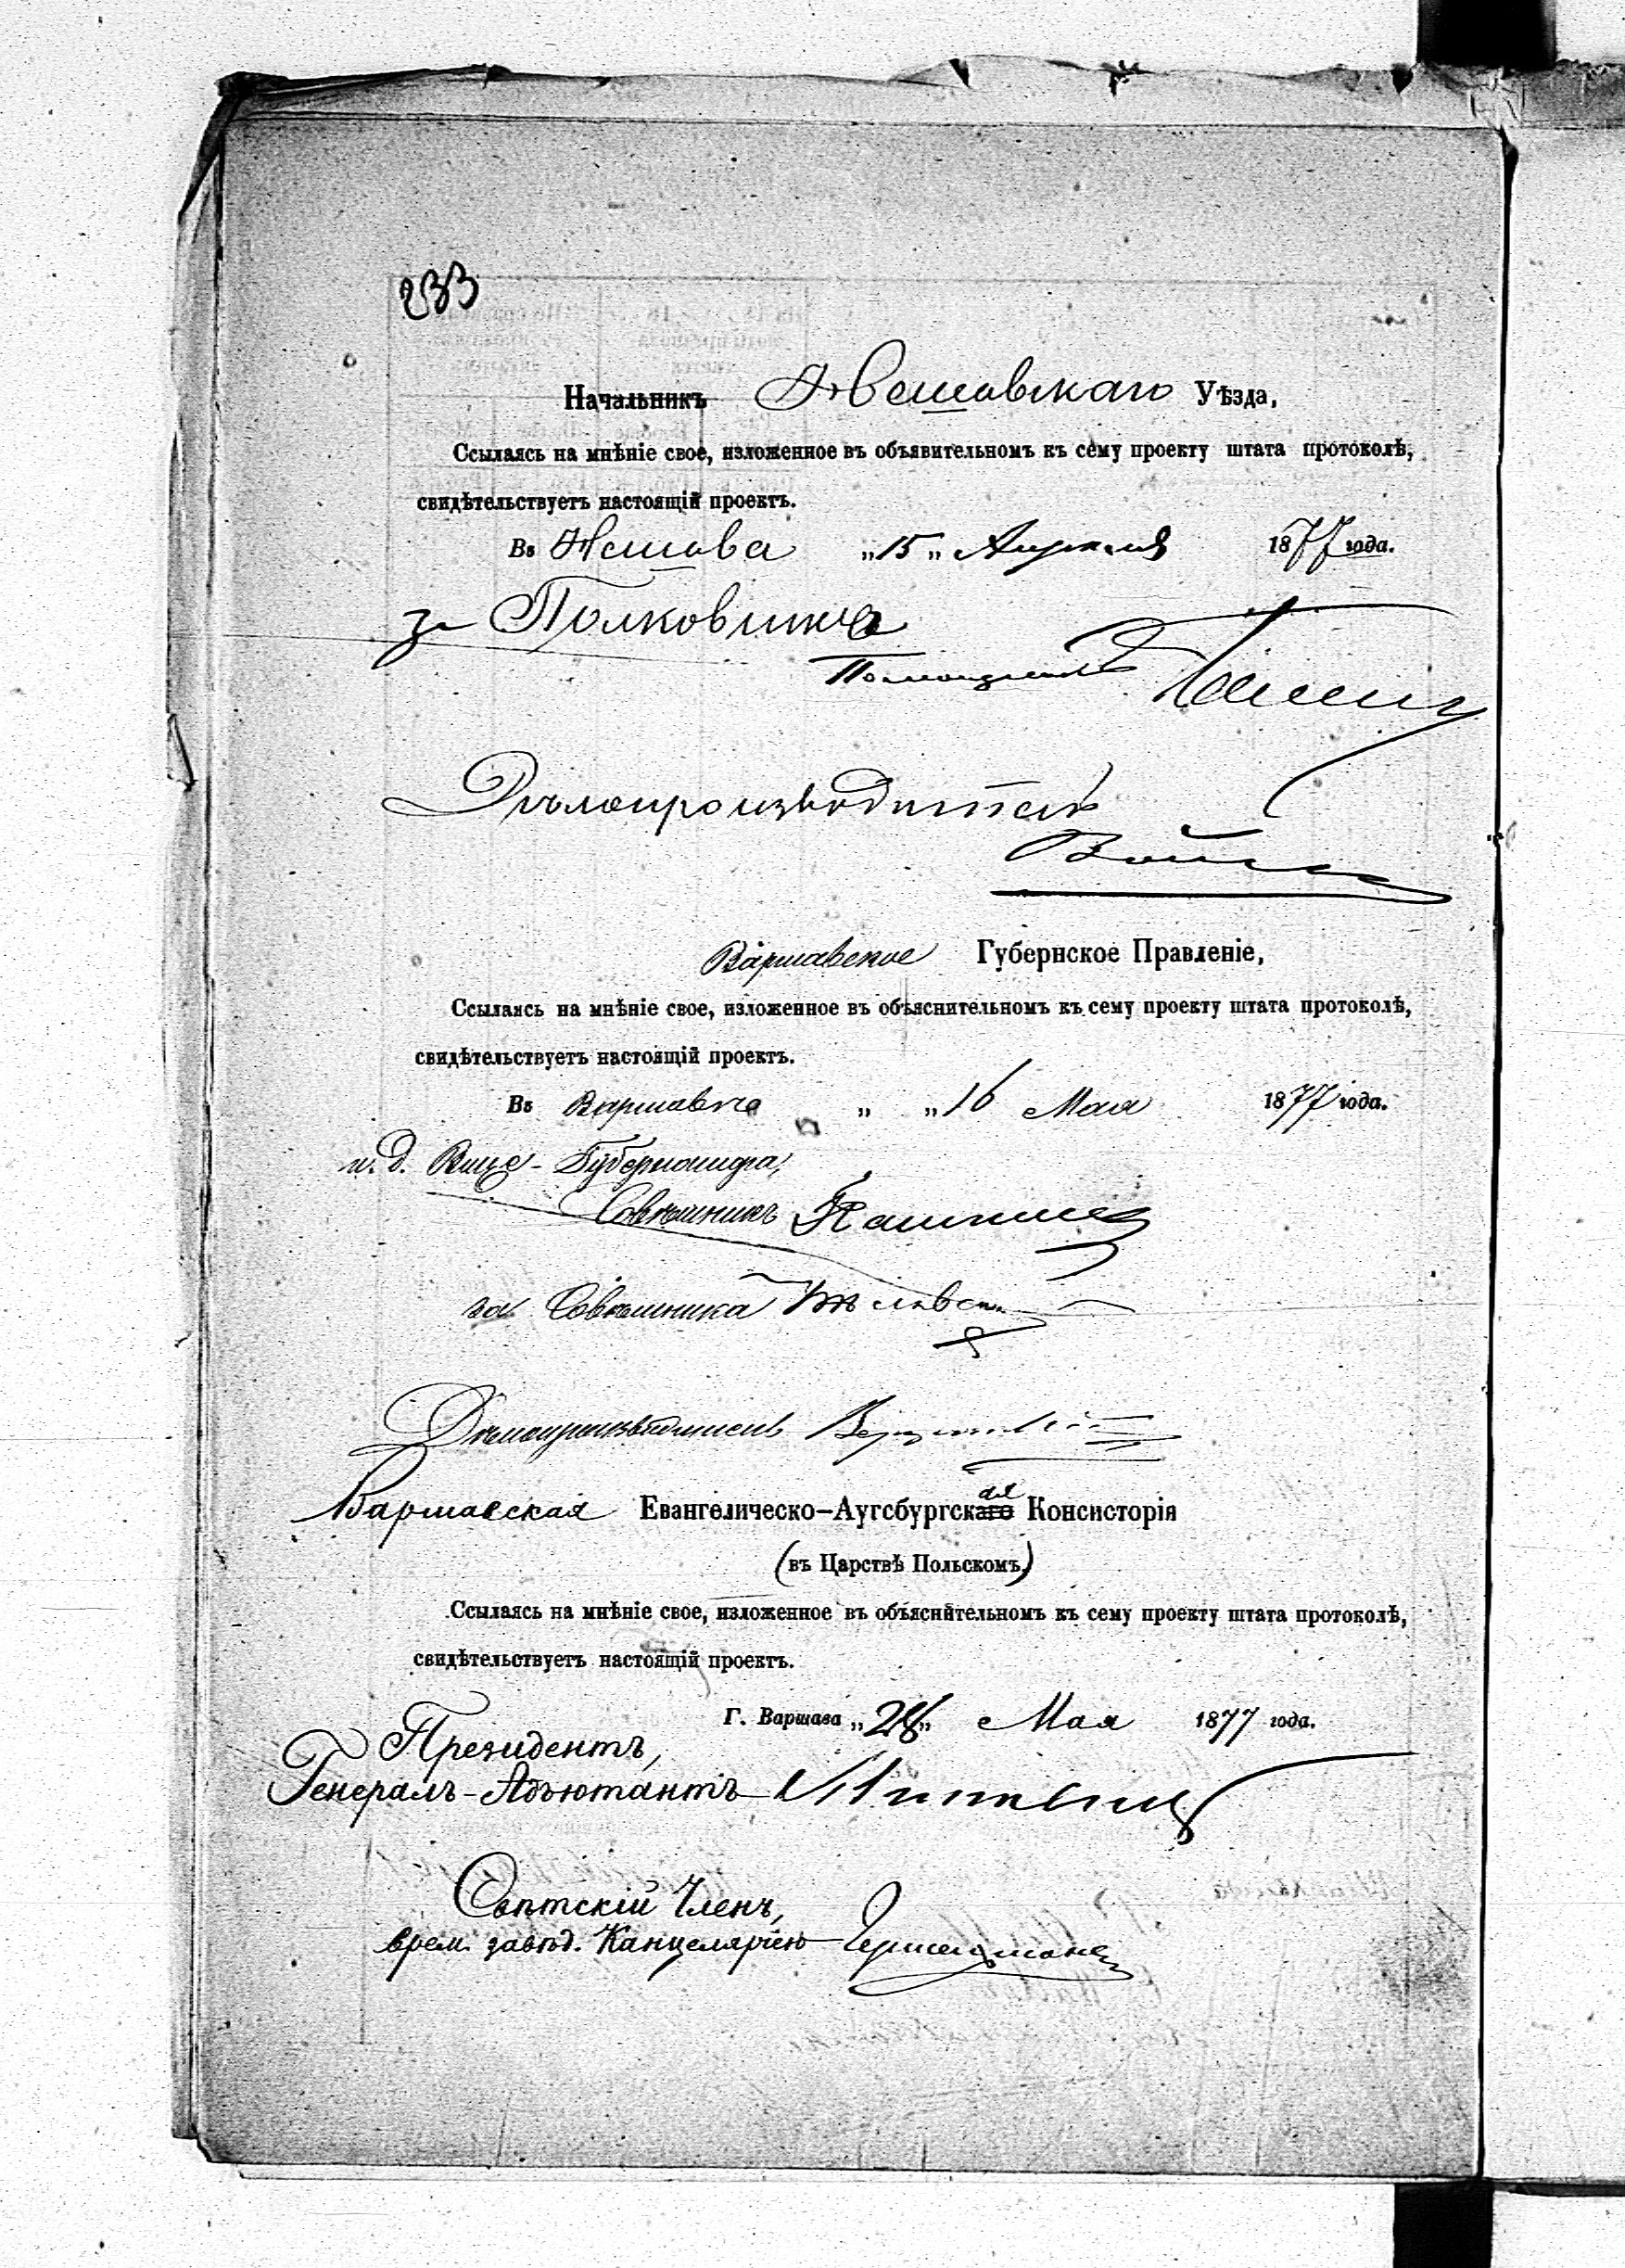 233
Начальникъ Нешавскаго Уѣзда,
Ссылаясь на мнѣніе свое, изложенное въ объявительномъ къ сему проекту штата протоколѣ,
свидѣтельствуетъ настоящій проектъ.
Въ Нешава „15„ Апрѣля 1877 года.
за Полковника
Помощникъ
Дѣлопроизводитель
Варшавское Губернское Правленіе,
Ссылаясь на мнѣніе свое, изложенное въ объяснительномъ къ сему проекту штата протоколѣ,
свидѣтельствуетъ настоящій проектъ.
Въ Варшавѣ „ „16 Мая 1877 года.
и. д. Вице-Губернатора,
Совѣтникъ
за Совѣтника
Дѣлопроизводитель
Варшавская Евангелическо-Аугсбургская Консисторія
(въ Царствѣ Польскомъ)
Ссылаясь на мнѣніе свое, изложенное въ объяснительномъ къ сему проекту штата протоколѣ,
свидѣтельствуетъ настоящій проектъ.
Г. Варшава „28„ Мая 1877 года.
Президентъ,
Генералъ-Адъютантъ
Свѣтскій Членъ,
врем. завѣд. Канцеляріею